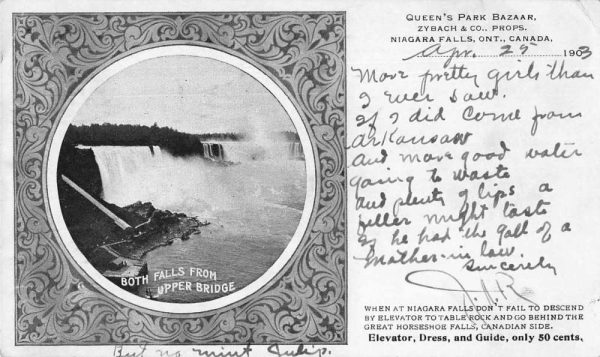 QUEEN'S PARK BAZAAR,
ZYBACH & CO., PROPS.
NIAGARA FALLS, ONT., CANADA,
Apr. 25 1903
More pretty girls than
I ever saw.
If I did come from
Arkansaw
And more good water
going to waste
and plenty of lips a
feller might taste
If he had the gall of a
Mother-in-law.
Sincerely
J.J.R.
BOTH FALLS FROM
UPPER BRIDGE
WHEN AT NIAGARA FALLS DON'T FAIL TO DESCEND
BY ELEVATOR TO TABLE ROCK AND GO BEHIND THE
GREAT HORSESHOE FALLS, CANADIAN SIDE.
Elevator, Dress, and Guide, only 50 cents.
But no mint Julip.